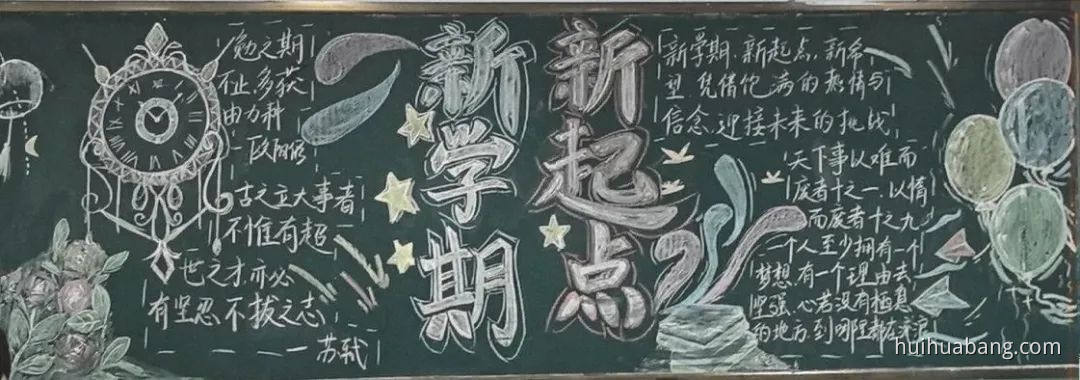 勉之期
不止,多获
由力耕
古之立大事者
不惟有超
世之才,亦必
有坚忍不拔之志
——苏轼
新学期
新起点
新学期,新起点,新希
望,凭借饱满的热情与
信念,迎接未来的挑战
天下事以难而
废者十之一,以惰
而废者十之九
一个人至少拥有一个
梦想,有一个理由去
坚强,心若没有栖息
的地方,到哪里都在流浪
huihuabang.com